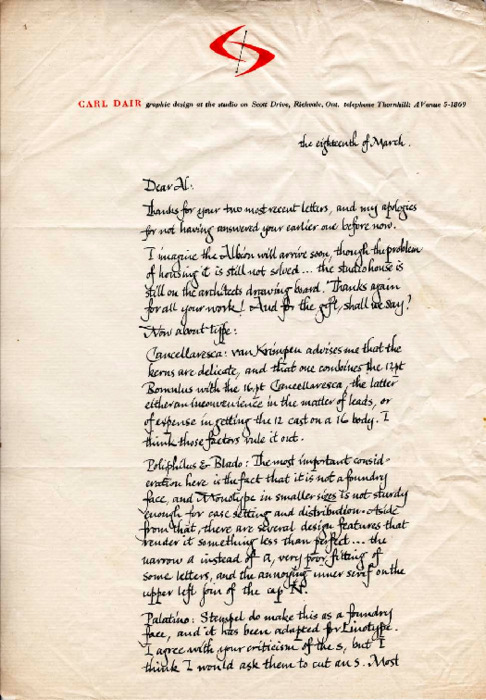 CARL DAIR graphic design at the studio on Scott Drive, Richvale, Ont. telephone Thornhill: AVenue 5-1869
the eighteenth of March.
Dear Al:
Thanks for your two most recent letters, and my apologies
for not having answered your earlier one before now.
I imagine the Albion will arrive soon, though the problem
of housing it is still not solved... the studiohouse is
still on the architects drawing board. Thanks again
for all your work! And for the gift, shall we say?
Now about type:
Cancellaresca: van Krimpen advises me that the
kerns are delicate, and that one combines the 12pt
Romulus with the 16pt Cancellaresca, the latter
either an inconvenience in the matter of leads, or
of expense in getting the 12 cast on a 16 body. I
think those factors rule it out.
Poliphilus & Blado: The most important consid-
eration here is the fact that it is not a foundry
face, and Monotype in smaller sizes is not sturdy
enough for case setting and distribution. Aside
from that, there are several design features that
render it something less than perfect... the
narrow a instead of a, very poor fitting of
some letters, and the annoying inner serif on the
upper left join of the cap N.
Palatino: Stempel do make this as a foundry
face, and it has been adapted for Linotype.
I agree with your criticism of the s, but I
think I would ask them to cut an s. Most